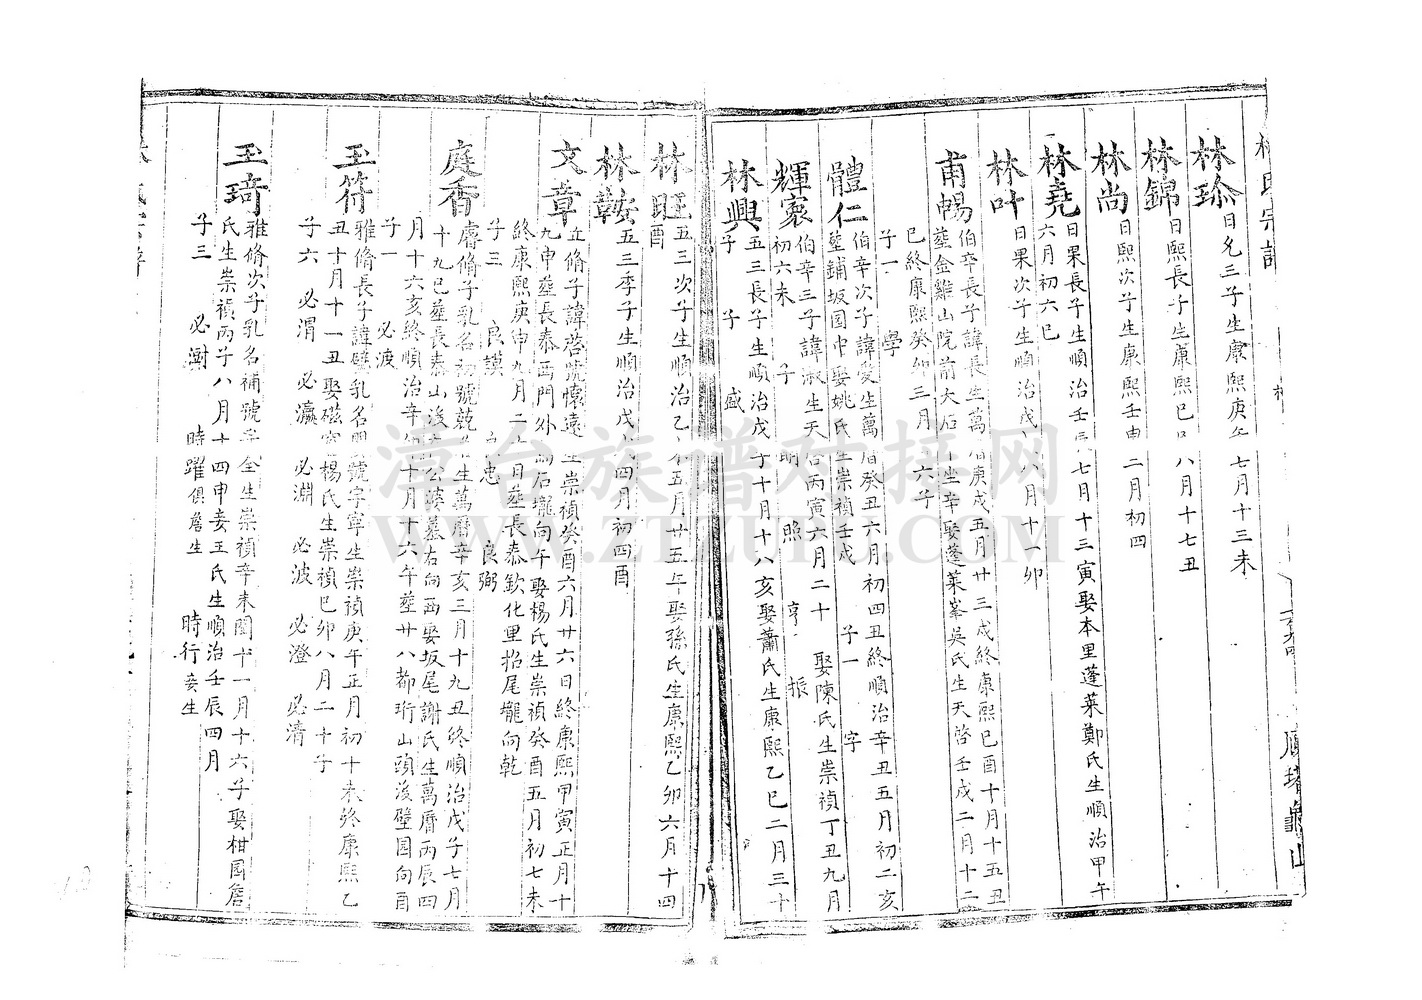 林氏宗譜
林珍
日允三子生康熙庚午七月十三未
林錦
日熙長子生康熙巳八月十七丑
林尚
日熙次子生康熙壬申二月初四
林堯
日果長子生順治壬辰七月十三寅娶本里蓬萊鄭氏生順治甲午
六月初六巳
林叶
日果次子生順治戊八月十一卯
甫暢
伯辛長子諱長生萬曆庚戌五月廿三戌終康熙巳酉十月十五丑
葬金雞山院前大石坐辛娶蓬萊峯吳氏生天啓壬戌二月十二
巳終康熙癸卯三月六子
子一 學
體仁
伯辛次子諱愛生萬曆癸丑六月初四丑終順治辛丑五月初二亥
塟鋪坂园中娶姚氏生崇禎壬戌 子一 字
輝寰
伯辛三子諱淑生天啓丙寅六月二十 娶陳氏生崇禎丁丑九月
初六未 子 明 照 亨 振
林興
五三長子生順治戊子十月十八亥娶蕭氏生康熙乙巳二月三十
子 子 盛
林旺
五三次子生順治乙未五月廿五午娶孫氏生康熙乙卯六月十四
酉
林鞍
五三季子生順治戊戌四月初四酉
文章
丘脩子諱啓號懷遠生崇禎癸酉六月廿六日終康熙甲寅正月十
九申塟長泰西門外石壠向午娶楊氏生崇禎癸酉五月初七未
終康熙庚申九月二十月塟長泰欽化里招尾壠向乾
子三 良謨 良忠 良弼
庭香
膚脩子乳名初號乾生萬曆辛亥三月十九丑終順治戊子七月
十九巳塟長泰山後公婆墓右向酉娶坂尾謝氏生萬曆丙辰四
月十六亥終順治辛卯十月十六午塟廿八都珩山頭後壁园向酉
子一 必渡
玉符
雅脩長子諱璧乳名盟號字寧生崇禎庚午正月初十未終康熙乙
丑十月十一丑娶磁窑楊氏生崇禎巳卯八月二十子
子六 必渭 必瀛 必淵 必波 必澄 必清
玉琦
雅脩次子乳名補號字全生崇禎辛未閏十一月十六子娶柑园詹
氏生崇禎丙子八月十四申妾王氏生順治壬辰四月
子三 必澍 時躍俱詹生 時行妾生